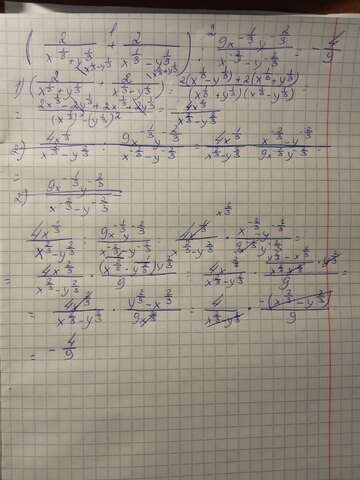 ( 2/(x^{1/3} + y^{1/3}) + 2/(x^{1/3} - y^{1/3}) ) : 9x^{-1/3}y^{-2/3}/(x^{-2/3} - y^{-2/3}) = -4/9
1) ( 2/(x^{1/3} + y^{1/3}) + 2/(x^{1/3} + y^{1/3}) ) = (2(x^{1/3} - y^{1/3}) + 2(x^{1/3} + y^{1/3}))/((x^{1/3} + y^{1/3})(x^{1/3} - y^{1/3})) =
= (2x^{1/3} - 2y^{1/3} + 2x^{1/3} + 2y^{1/3})/((x^{1/3})^2 - (y^{1/3})^2) = 4x^{1/3}/(x^{2/3} - y^{2/3})
2) 4x^{1/3}/(x^{2/3} - y^{2/3}) : 9x^{-1/3}y^{-2/3}/(x^{-2/3} - y^{-2/3}) = 4x^{1/3}/(x^{2/3} - y^{2/3}) · (x^{-2/3} - y^{-2/3})/(9x^{-1/3}y^{-2/3})
=
2) 9x^{-1/3}y^{-2/3}/(x^{-2/3} - y^{-2/3}) =
4x^{1/3}/(x^{2/3} - y^{2/3}) : 9x^{-1/3}y^{-2/3}/(x^{-2/3} - y^{-2/3}) =
= 4x^{2/3}/(x^{2/3} - y^{2/3}) · (x^{-2/3} - y^{-2/3})y^{2/3}/9 =
= 4x^{2/3}/(x^{2/3} - y^{2/3}) · (y^{2/3} - x^{2/3})/(9x^{2/3}) = 4/(x^{2/3} - y^{2/3}) · -(x^{2/3} - y^{2/3})/9 =
= -4/9